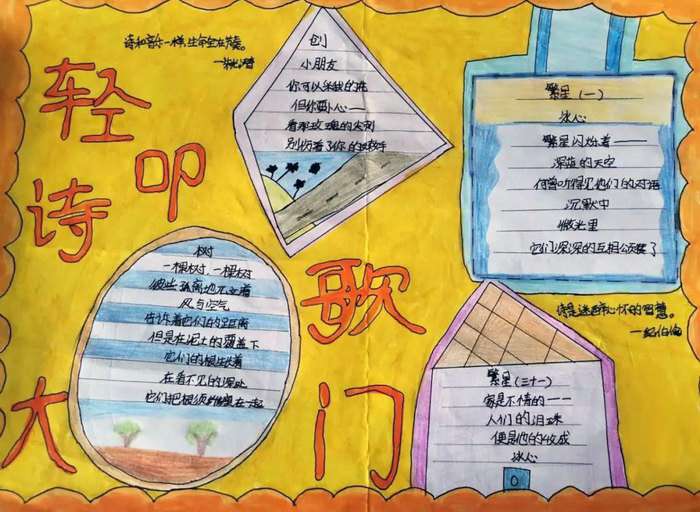 轻叩
诗歌
大门
诗和音乐一样，生命全在节奏。
创
小朋友
你可以采我的
但你要小心——
看那玫瑰的尖刺
别伤着了你的手
繁星（一）
冰心
繁星闪烁着——
深蓝的天空
何曾听得见他们的对语
沉默中
微光里
它们深深的互相颂赞了
树
一棵树，一棵树
彼此孤离地兀立着
风与空气
告诉着它们的距离
但是在泥土的覆盖下
它们的根生长着
在看不见的深处
它们把根须纠缠在一起
诗是迷醉心怀的智慧。
—纪伯伦
繁星（三十一）
家是不情的——
人们的泪珠
便是他的收成
冰心